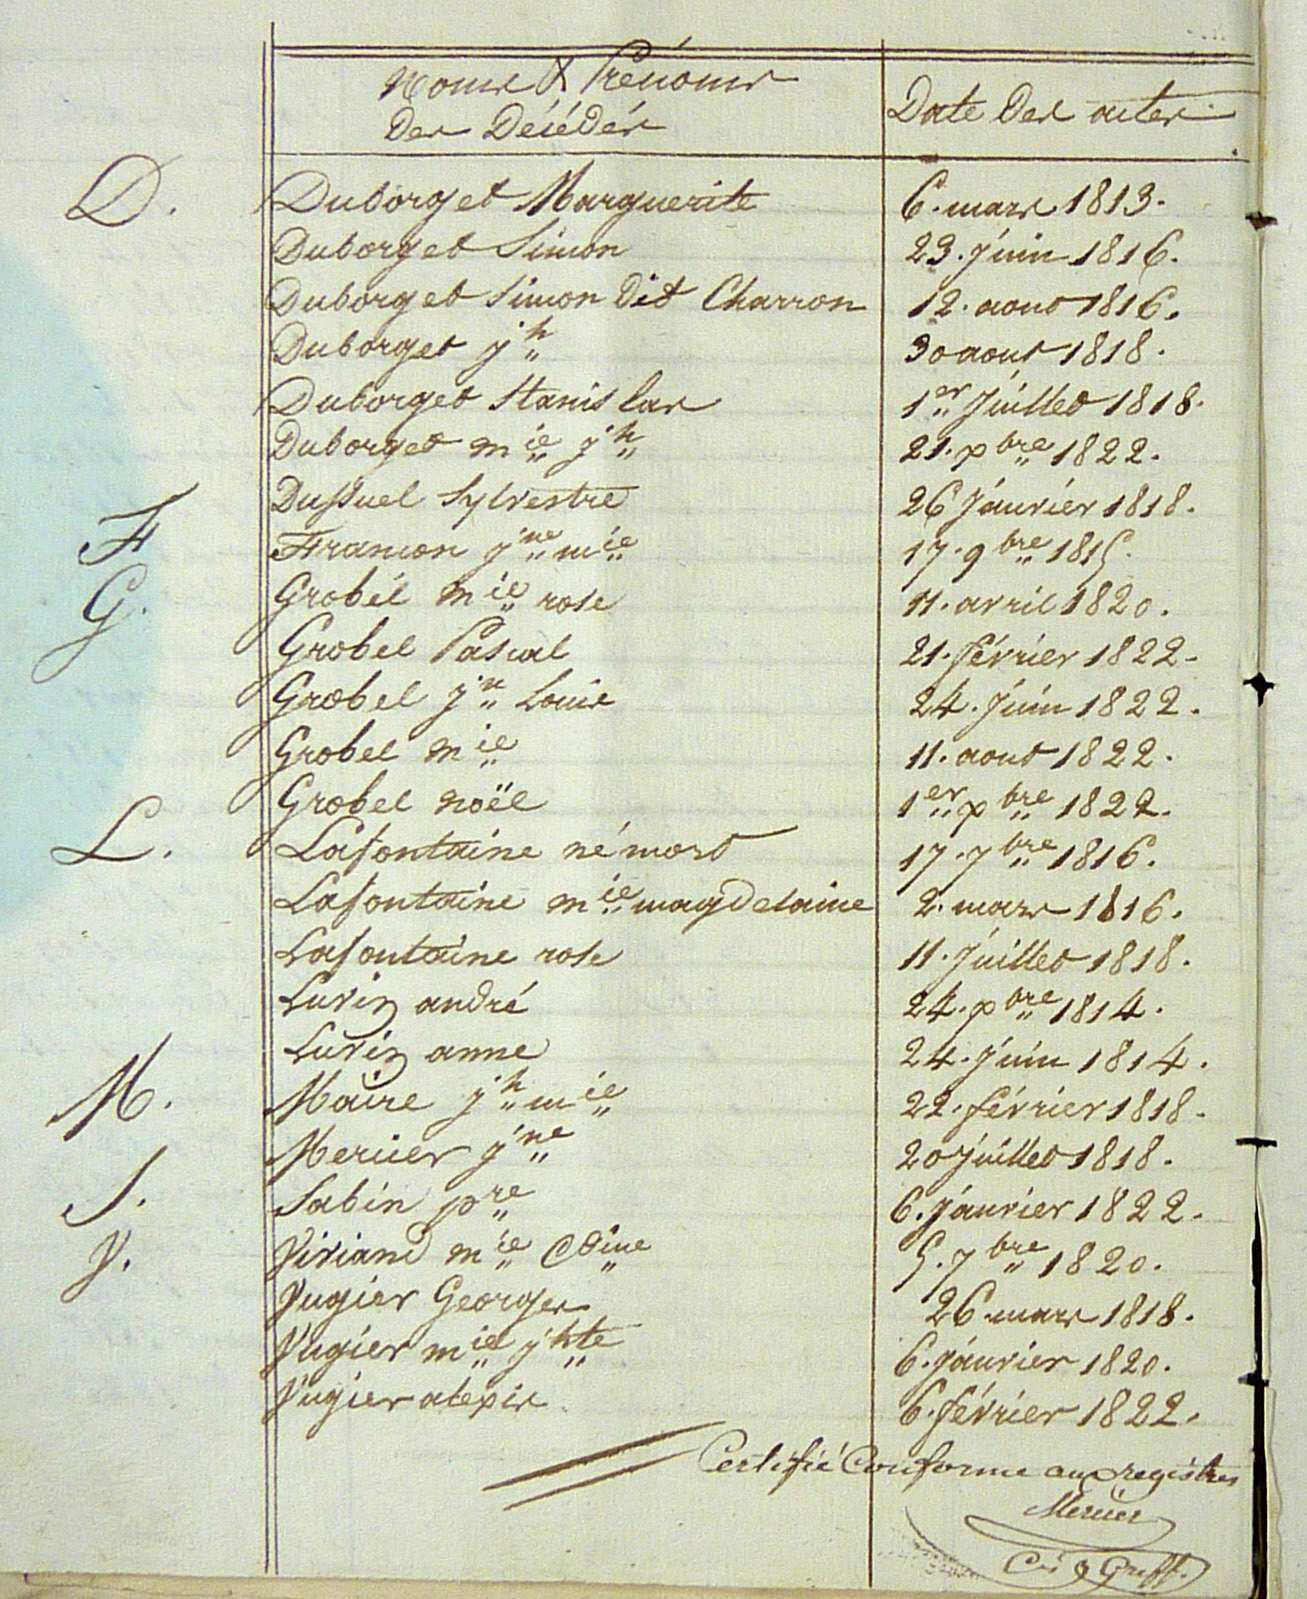 Noms & Prénoms
Des Décédés
Date Des actes
D. Duborget Marguerite 6. mars 1813.
Duborget Simon 23. juin 1816.
Duborget Simon Dit Charron 12. aout 1816.
Duborget jh 30 aout 1818.
Duborget Stanislas 1er juillet 1818.
Duborget mie jh 21. xbre 1822.
Dussuel Sylvestre 26 janvier 1818.
F Francon jne mie 17. 9bre 1815.
G. Grobel mie rose 11. avril 1820.
Grobel Pascal 21. février 1822.
Grobel jn Louis 24. juin 1822.
Grobel mie 11. aout 1822.
Grobel noël 1er xbre 1822.
L. Lafontaine né mort 17. 7bre 1816.
Lafontaine mie magdelaine 2. mars 1816.
Lafontaine rose 11. juillet 1818.
Luvin andré 24. xbre 1814.
Luvin anne 24. juin 1814.
M. Maire jh mie 22. février 1818.
Mercier jne 20 juillet 1818.
S. Sabin pre 6. janvier 1822.
V. Viviand mie Ctine 5. 7bre 1820.
Vugier Georges 26 mars 1818.
Vugier mie jhte 6. janvier 1820.
Vugier alexis 6. février 1822.
Certifié Conforme aux registres
Mercier
Greff.